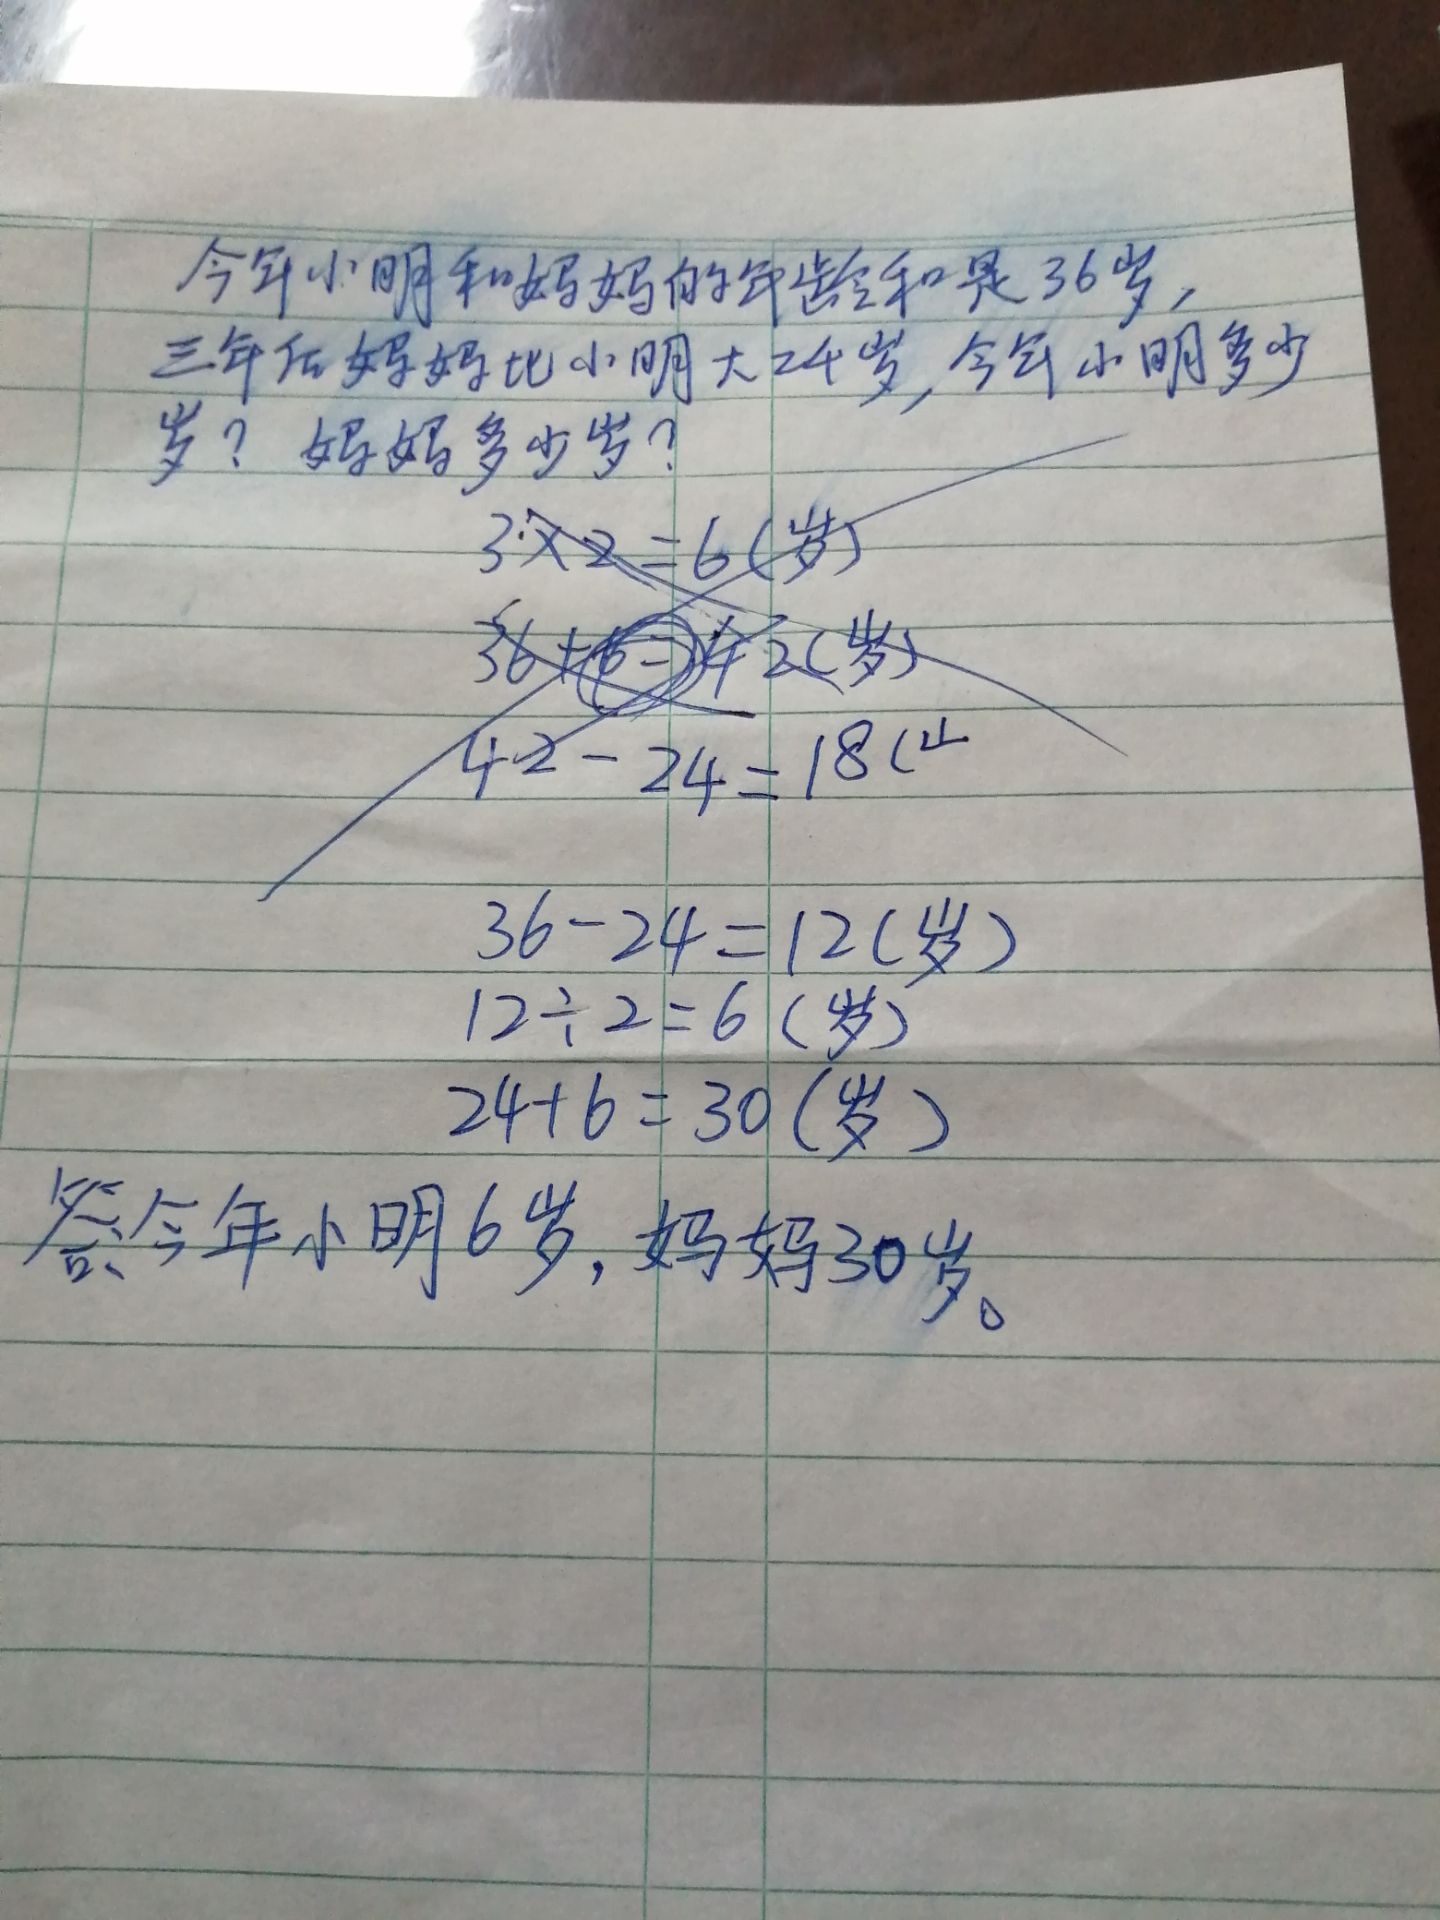 今年小明和妈妈的年龄和是36岁,
三年后妈妈比小明大24岁,今年小明多少
岁?妈妈多少岁?
3×2=6(岁)
36+6=42(岁)
42-24=18(山
36-24=12(岁)
12÷2=6(岁)
24+6=30(岁)
答:今年小明6岁,妈妈30岁。